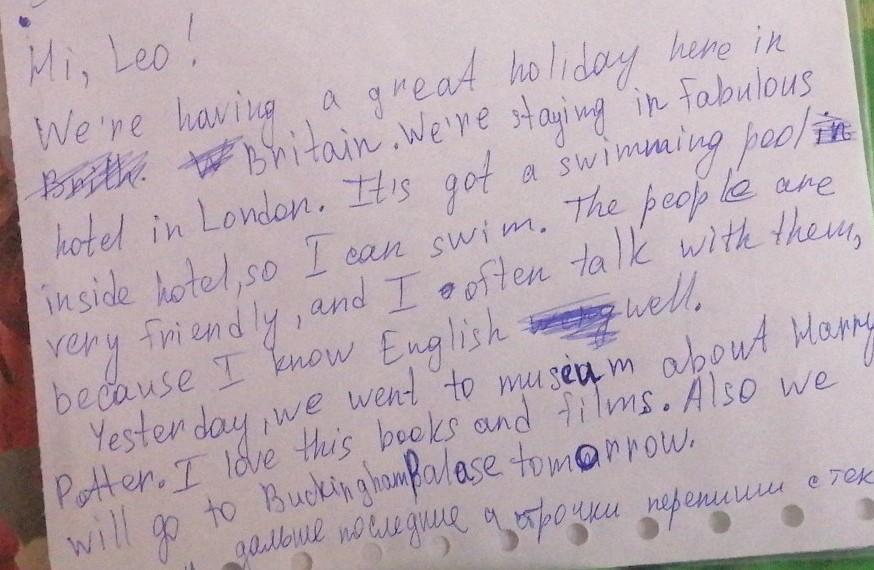 Hi, Leo!
We're having a great holiday here in
Britain. We're staying in fabulous
hotel in London. It's got a swimming pool
inside hotel, so I can swim. The people are
very friendly, and I often talk with them,
because I know English well.
Yesterday, we went to museum about Harry
Potter. I love this books and films. Also we
will go to Buckingham Palase tomorrow.
дальше последние 4 строчки перепиши с тек